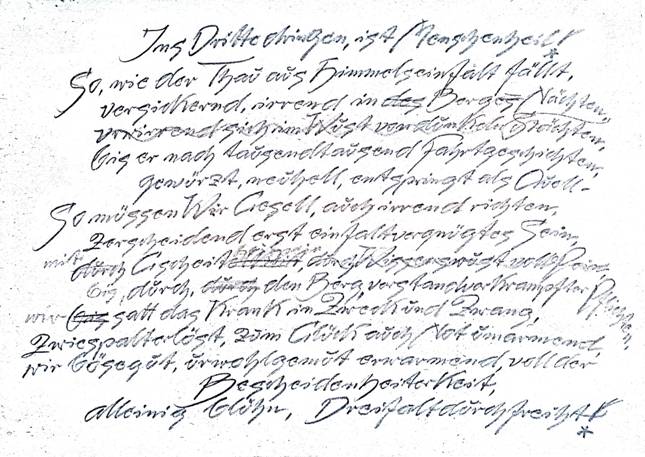 Ins Dritte dringen, ist Menschenheil
So, wie der Thau aus Himmelseinfalt fällt,
versickernd, irrend in des Berges Nächten,
verirrend sich im Wust von
bis er nach tausendtausend Jahrtgeschichten,
gewürzt, neuhell, entspringt als Quell-
So müssen Wir Gesell, auch irrend richten,
zerscheidend erst einfaltvergnügtes Sein,
mit
durch
bis, durch, durch den Bergverstandverkrampfter
wir bis satt das Krank in Zweck und Zwang,
Zwiespalterlöst, zum Glück auch Not umarmend,
wir bösegut, urwohlgemut erwarmend, voll der
Bescheidenheiterkeit,
alleinig blühn, Dreifaltdurchfreiht
*